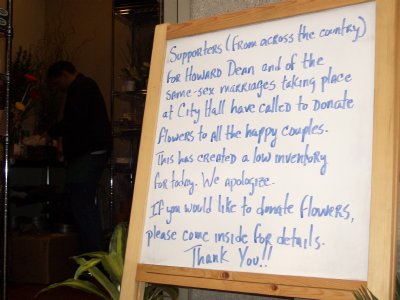 Supporters (from across the country)
for Howard Dean and of the
same-sex marriages taking place
at City Hall have called to Donate
flowers to all the happy couples.
This has created a low inventory
for today. We apologize.
If you would like to donate flowers,
please come inside for details.
Thank You!!